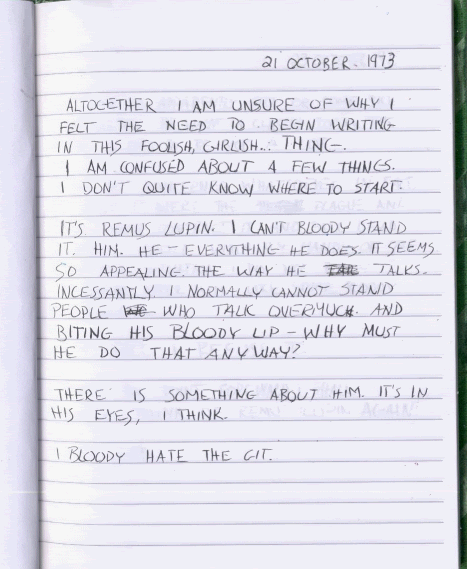 21 OCTOBER. 1973
ALTOGETHER I AM UNSURE OF WHY I
FELT THE NEED TO BEGIN WRITING
IN THIS FOOLISH, GIRLISH... THING.
I AM CONFUSED ABOUT A FEW THINGS.
I DON'T QUITE KNOW WHERE TO START.
IT'S REMUS LUPIN. I CAN'T BLOODY STAND
IT. HIM. HE - EVERYTHING HE DOES. IT SEEMS
SO APPEALING. THE WAY HE TALKS.
INCESSANTLY. I NORMALLY CANNOT STAND
PEOPLE WHO TALK OVERMUCH. AND
BITING HIS BLOODY LIP - WHY MUST
HE DO THAT ANYWAY?
THERE IS SOMETHING ABOUT HIM. IT'S IN
HIS EYES, I THINK.
I BLOODY HATE THE GIT.